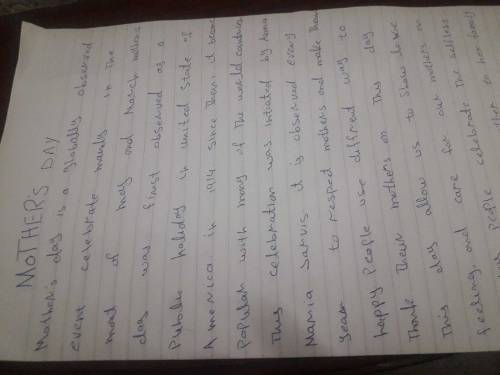 MOTHERS DAY
Mother's day is a globally observed
event celebrate mandy in the
mont of may and march mother's
day was first observed as a
Pubolic holiday in united state of
America in 1914 since then it become
Popular with many of the world countries
This celebration was intiated by Anna
Maria Jarvis it is observed every
year to respect mothers and make them
happy People use diffrent way to
Thank Their mothers on This day
This day allow us to show love
feeling and care for our mothers on
People celebrate The selfless
on her family